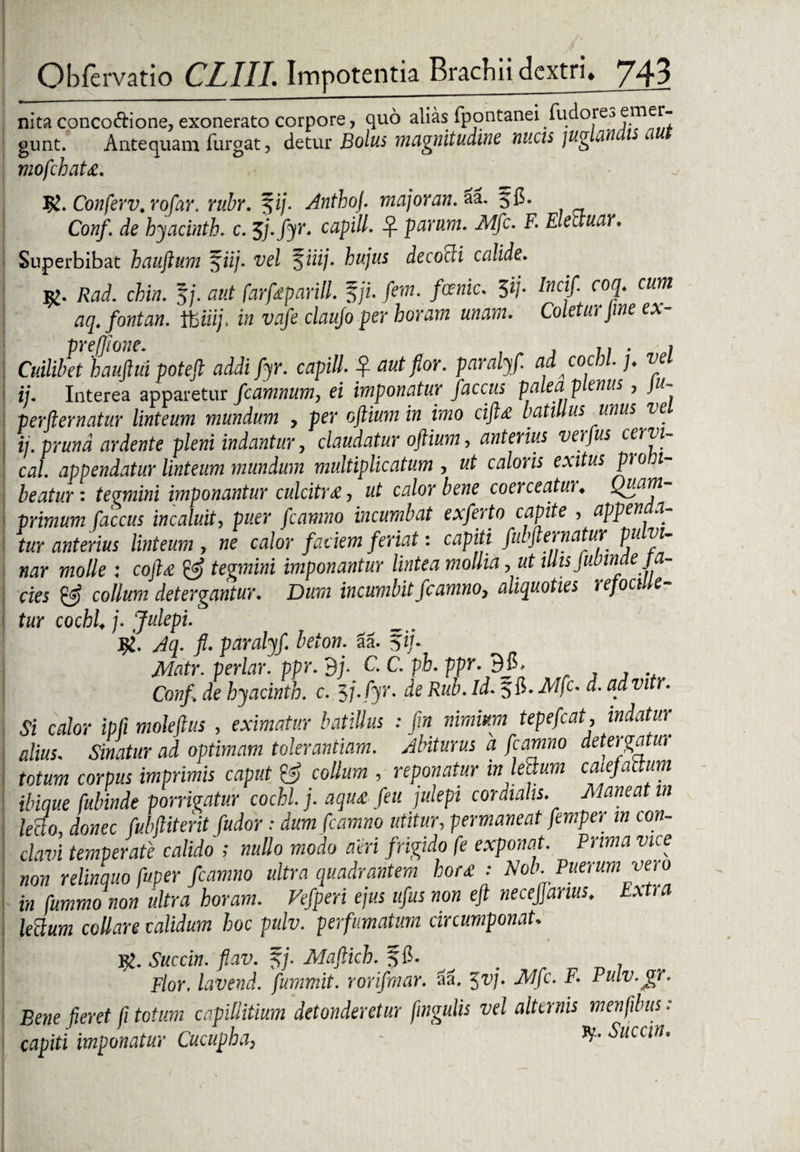 Obſervatio CLIII. Impotentia Brachii dextri. 743
nita concoctione, exonerato corpore, quò aliàs ſpontanei ſudores emer-
gunt. Antequam ſurgat, detur Bolus magnitudine nucis juglandis aut
moſchatæ.
℞. Conſerv. roſar. rubr. ℥ij. Anthoſ. majoran. āā. ℥ß.
Conf. de hyacinth. c. ʒj. ſyr. capill. ♀ parum. Mſc. F. Electuar.
Superbibat hauſtum ℥iij. vel ℥iiij. hujus decocti calidè.
℞. Rad. chin. ℥j. aut ſarſæparill. ℥ji. ſem. fœnic. ʒij. Inciſ. coq. cum
aq. fontan. ℔iiij. in vaſe clauſo per horam unam. Coletur ſine ex-
preſſione.
Cuilibet hauſtui poteſt addi ſyr. capill. ♀ aut flor. paralyſ. ad cochl. j. vel
ij. Interea apparetur ſcamnum, ei imponatur ſaccus paleâ plenus, ſu-
perſternatur linteum mundum, per oſtium in imo ciſtæ batillus unus vel
ij. prunâ ardente pleni indantur, claudatur oſtium, anterius verſus cervi-
cal. appendatur linteum mundum multiplicatum, ut caloris exitus prohi-
beatur: tegmini imponantur culcitræ, ut calor bene coerceatur. Quam-
primum ſaccus incaluit, puer ſcamno incumbat exſerto capite, appenda-
tur anterius linteum, ne calor faciem feriat: capiti ſubſternatur pulvi-
nar molle: coſtæ & tegmini imponantur lintea mollia, ut illis ſubinde fa-
cies & collum detergantur. Dum incumbit ſcamno, aliquoties refocille-
tur cochl. j. Julepi.
℞. Aq. fl. paralyſ. beton. āā. ℥ij.
Matr. perlar. ppr. ℈j. C. C. ph. ppr. ℈ß.
Conf. de hyacinth. c. ʒj. ſyr. de Rub. Id. ℥ß. Mſc. d. ad vitr.
Si calor ipſi moleſtus, eximatur batillus: ſin nimium tepeſcat, indatur
alius. Sinatur ad optimam tolerantiam. Abiturus à ſcamno detergatur
totum corpus imprimis caput & collum, reponatur in lectum calefactum
ibique ſubinde porrigatur cochl. j. aquæ ſeu julepi cordialis. Maneat in
lecto, donec ſubſtiterit ſudor: dum ſcamno utitur, permaneat ſemper in con-
clavi temperatè calido; nullo modo aëri frigido ſe exponat. Prima vice
non relinquo ſuper ſcamno ultra quadrantem horæ: Nob. Puerum verò
in ſummo non ultra horam. Veſperi ejus uſus non eſt neceſſarius. Extra
lectum collare calidum hoc pulv. perfumatum circumponat.
℞. Succin. flav. ℥j. Maſtich. ℥ß.
Flor. lavend. ſummit. roriſmar. āā. ʒvj. Mſc. F. Pulv. gr.
Bene fieret ſi totum capillitium detonderetur ſingulis vel alternis menſibus:
capiti imponatur Cucupha,
℞. Succin.